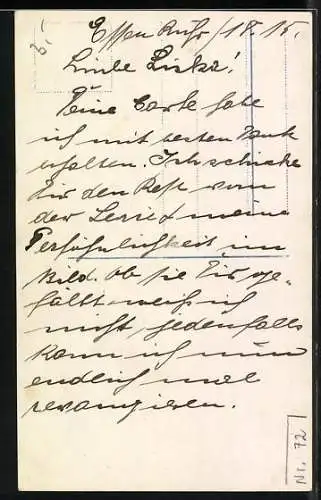 6,-
Essen Ruhr / 18. 15.
Liebe Liska!
Deine Carte habe
ich mit besten Dank
erhalten. Ich schicke
Dir den Rest von
der Serie & meine
Persöhnlichkeit im
Bild. Ob sie Dir ge-
fällt weiß ich
nicht, jedenfalls
kann ich nun
endlich mal
revangieren.
Nr. 72